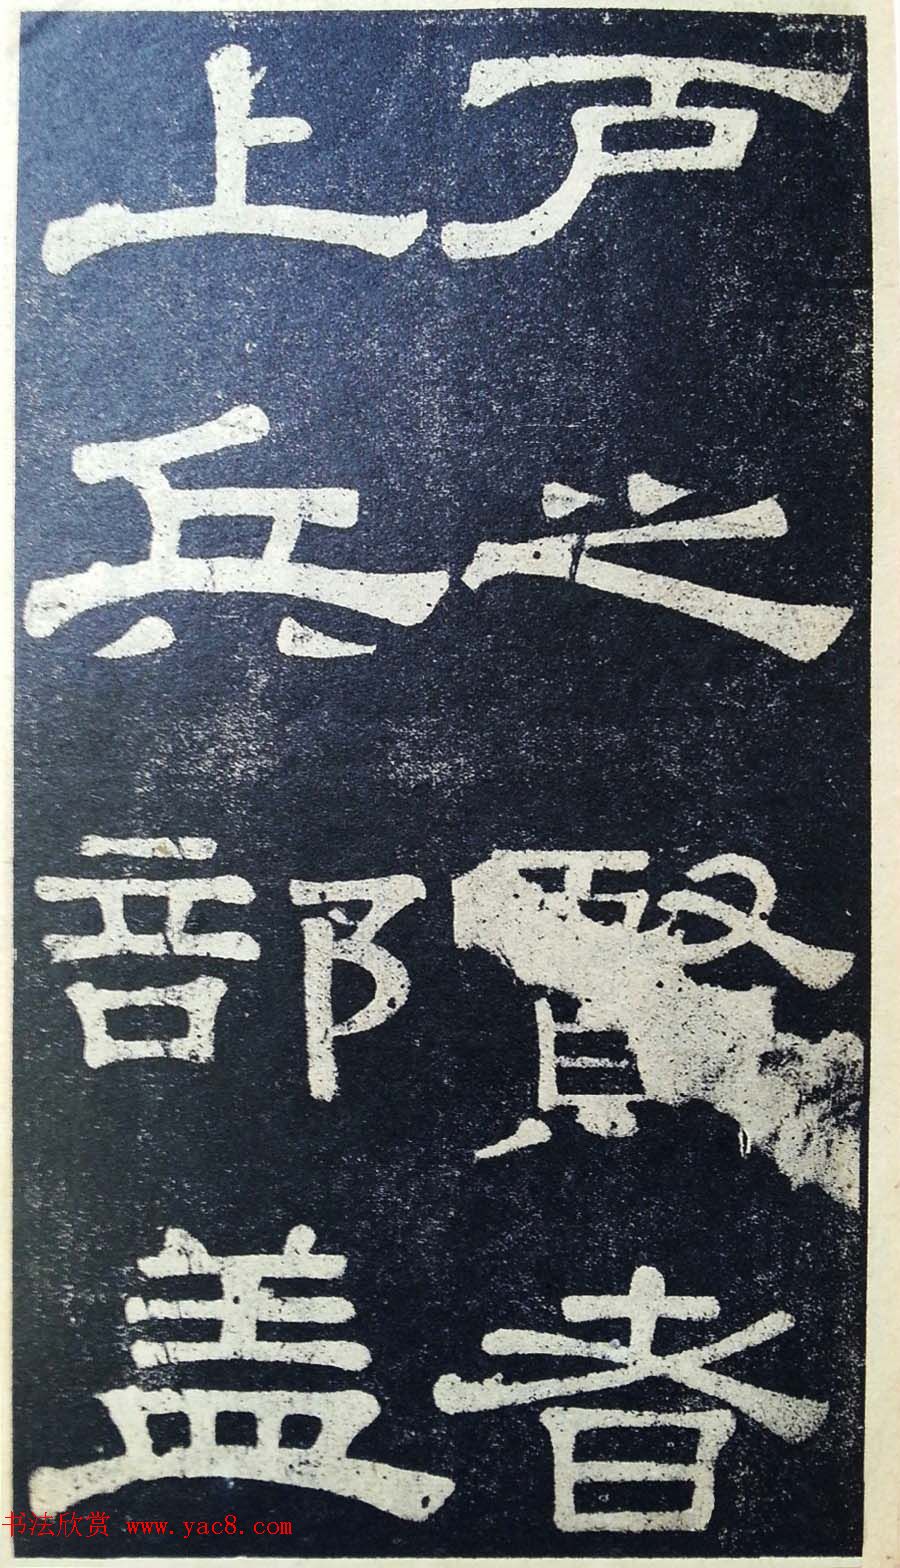 戶之賢者
上兵部盖
书法欣赏 www.yac8.com